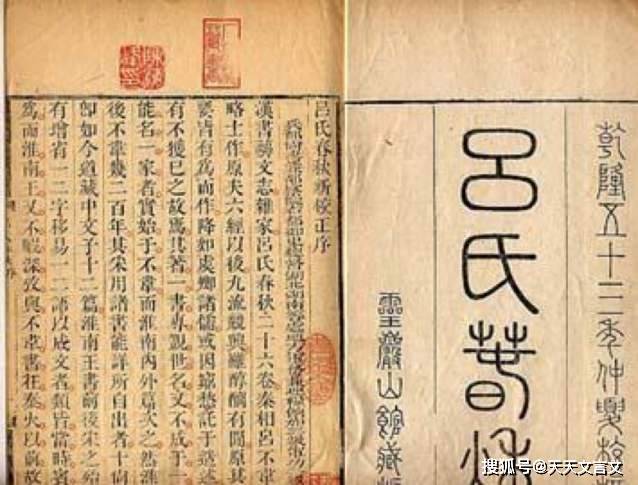 乾隆五十三年仲夏校
呂氏春秋
靈巖山館藏
呂氏春秋新校正序
漢書藝文志雜家呂氏春秋二十六卷秦相呂不韋
略士作原夫六經以後九流競興雖醇醨有間原其
要皆有爲而作降如虞卿諸儒或因窮愁託于造述
有不獲已之故焉其著一書專覬世名又不成于一
能名一家者實始于不韋而淮南內外篇次之然淮
後不韋幾二百年其采用諸書能詳所自出者十尚
卽如今道藏中文子十二篇淮南王書前後采之殆
有增省一二字移易一二語以成文者類皆當時賓
爲而淮南王又不暇深攷與不韋書在秦火以前故
搜狐号@天天文言文